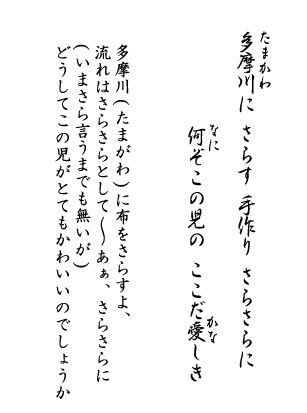 たまかわ
多摩川に さらす 手作り さらさらに
なに
何ぞこの児の ここだ愛しき
かな
多摩川(たまがわ)に布をさらすよ、
流れはさらさらとして〜あぁ、さらさらに
(いまさら言うまでも無いが)
どうしてこの児がとてもかわいいのでしょうか